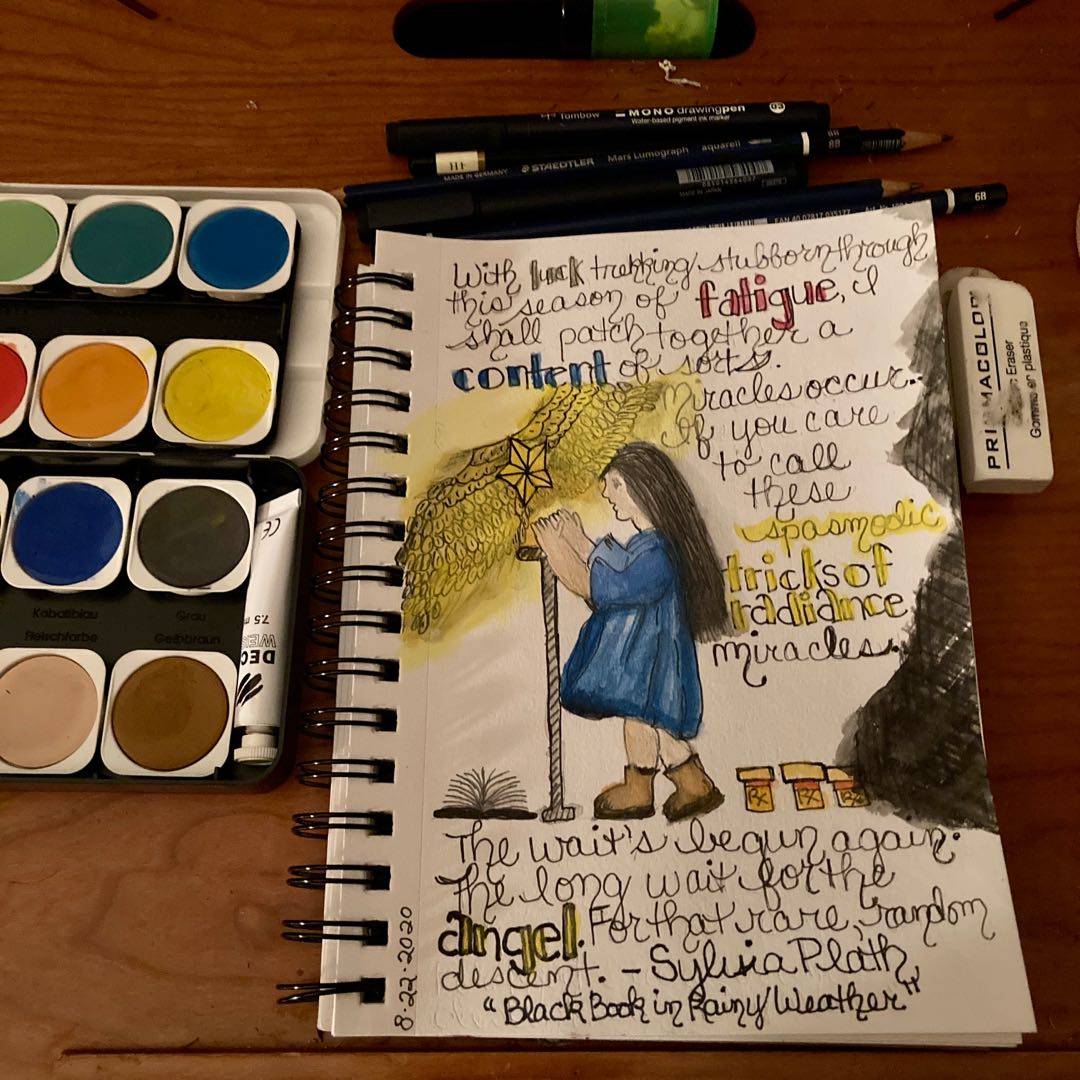 Tombow MONO drawing pen 03
Water-based pigment ink marker
MADE IN GERMANY STAEDTLER Mars Lumograph aquarell 8B
8B
MADE IN JAPAN
6B
With luck trekking stubborn through
this season of fatigue, I
shall patch together a
content of sorts.
Miracles occur..
If you care
to call
these
spasmodic
tricks of
radiance
miracles.
Rx Rx Rx
The wait's begun again.
The long wait for the
angel. For that rare, random
descent. - Sylvia Plath,
"Black Book in Rainy Weather"
8.22.2020
PRISMACOLOR
Eraser
Gomme en plastique
Kobaltblau Grau
Fleischfarbe Gelbbraun
CE
7.5
DEC